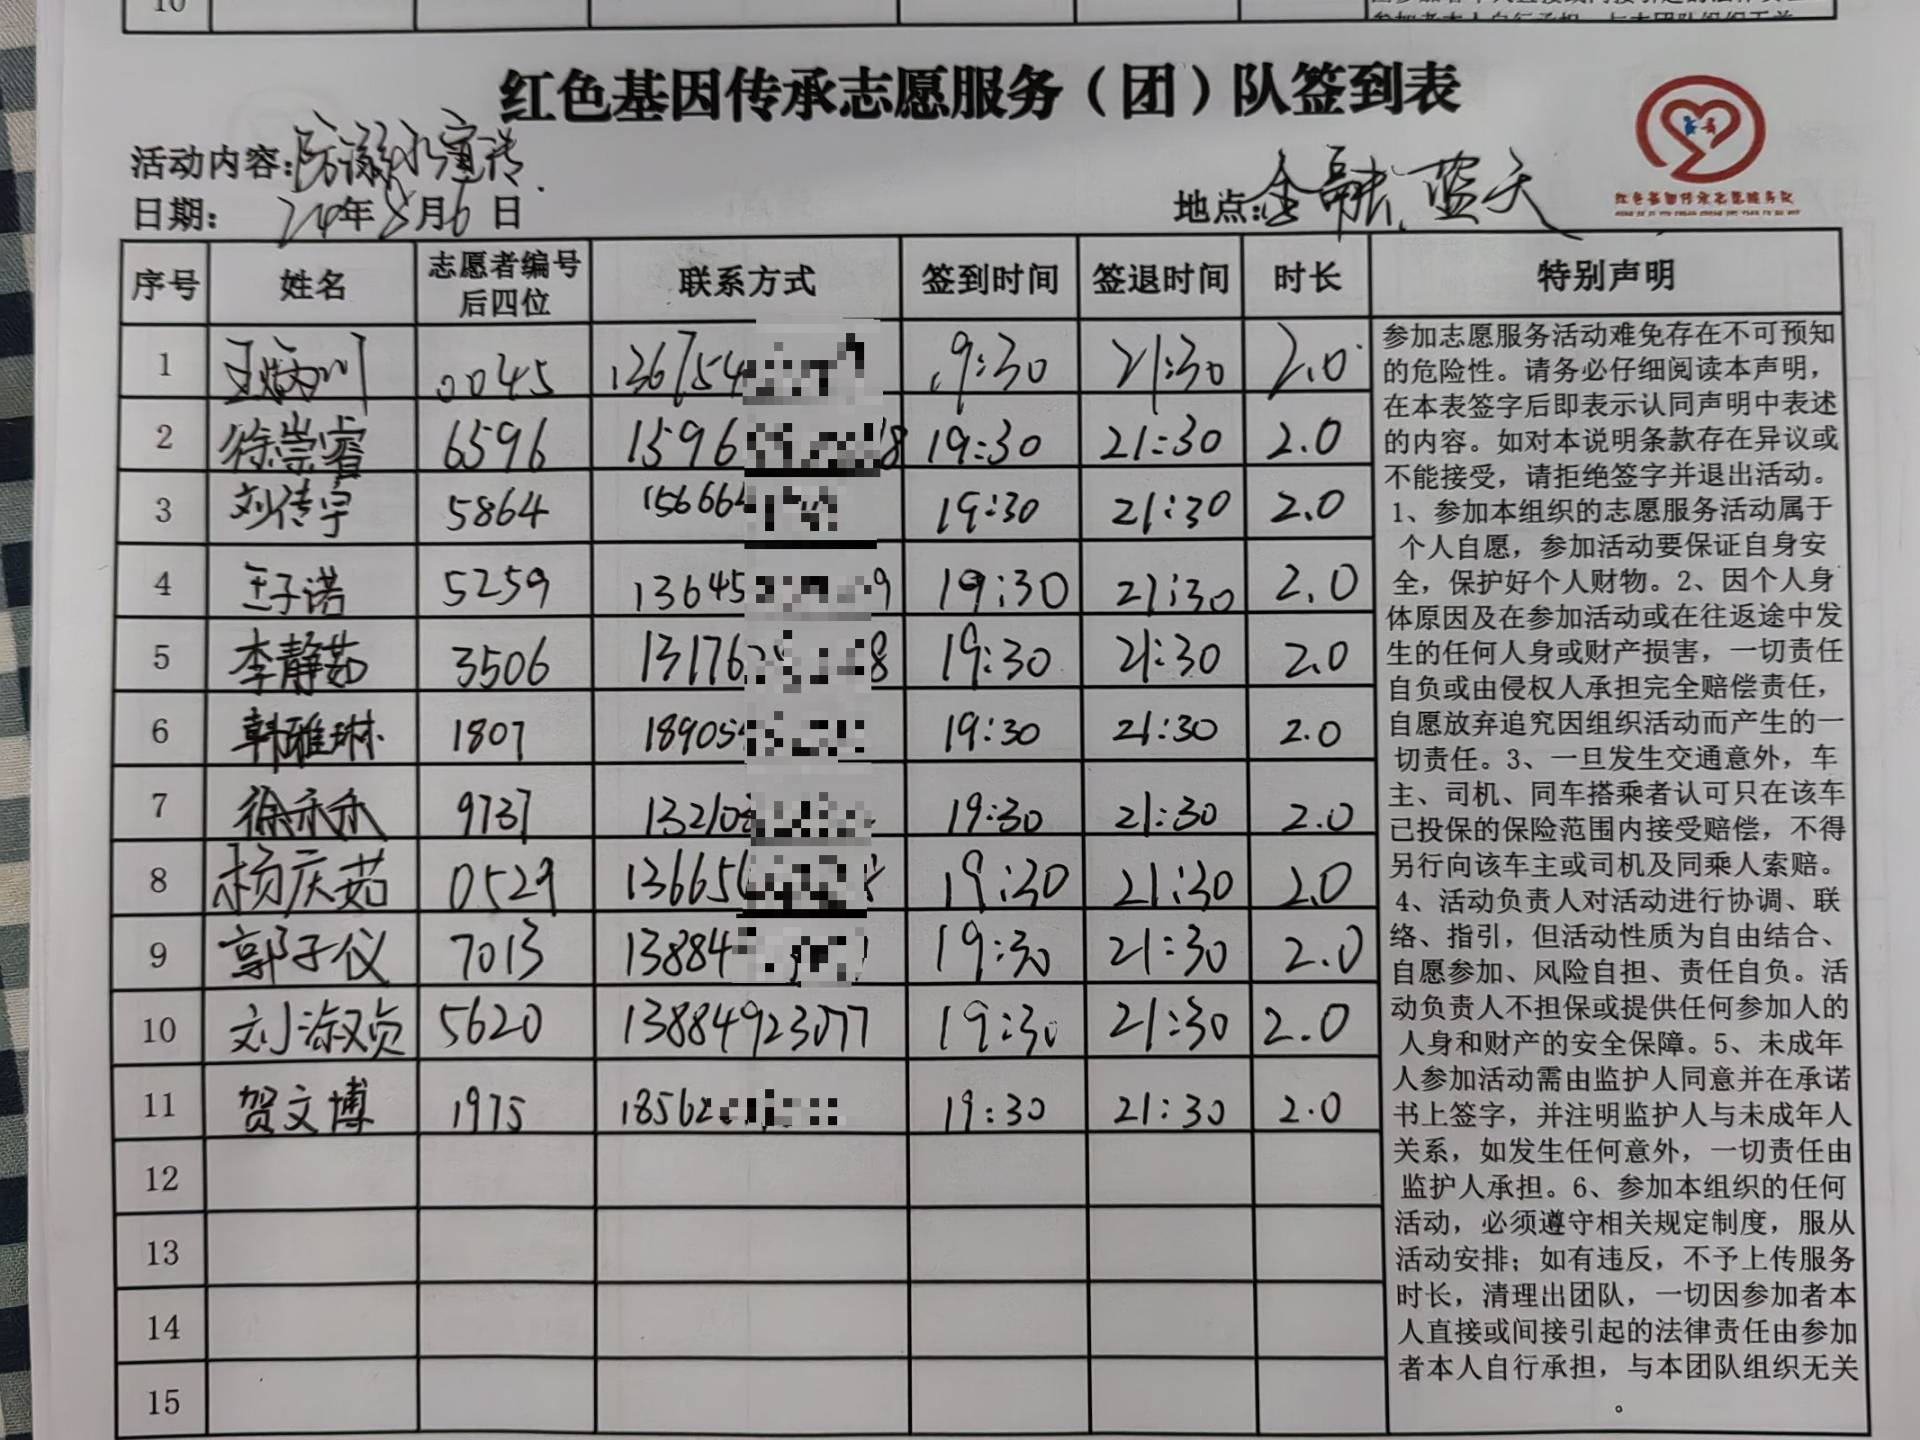 10
参加者本人自行承担，与本团队组织无关
红色基因传承志愿服务（团）队签到表
红色基因传承志愿服务队
活动内容:防溺水宣传.
日期： 年8月6日
地点:金融、蓝天
序号 姓名 志愿者编号后四位 联系方式 签到时间 签退时间 时长 特别声明
1 0045 136754 19:30 21:30 2.0
2 徐崇睿 6596 1596 8 19:30 21:30 2.0
3 刘传宇 5864 15666 19:30 21:30 2.0
4 王子诺 5259 13645 9 19:30 21:30 2.0
5 李静茹 3506 13176 8 19:30 21:30 2.0
6 韩雅琳 1807 18905 19:30 21:30 2.0
7 徐禾禾 9737 13210 19:30 21:30 2.0
8 杨庆茹 0529 13665 19:30 21:30 2.0
9 郭子仪 7013 13884 19:30 21:30 2.0
10 刘淑贞 5620 13884923077 19:30 21:30 2.0
11 贺文博 1975 18562 19:30 21:30 2.0
12
13
14
15
参加志愿服务活动难免存在不可预知
的危险性。请务必仔细阅读本声明，
在本表签字后即表示认同声明中表述
的内容。如对本说明条款存在异议或
不能接受，请拒绝签字并退出活动。
1、参加本组织的志愿服务活动属于
个人自愿，参加活动要保证自身安
全，保护好个人财物。2、因个人身
体原因及在参加活动或在往返途中发
生的任何人身或财产损害，一切责任
自负或由侵权人承担完全赔偿责任，
自愿放弃追究因组织活动而产生的一
切责任。3、一旦发生交通意外，车
主、司机、同车搭乘者认可只在该车
已投保的保险范围内接受赔偿，不得
另行向该车主或司机及同乘人索赔。
4、活动负责人对活动进行协调、联
络、指引，但活动性质为自由结合、
自愿参加、风险自担、责任自负。活
动负责人不担保或提供任何参加人的
人身和财产的安全保障。5、未成年
人参加活动需由监护人同意并在承诺
书上签字，并注明监护人与未成年人
关系，如发生任何意外，一切责任由
监护人承担。6、参加本组织的任何
活动，必须遵守相关规定制度，服从
活动安排；如有违反，不予上传服务
时长，清理出团队，一切因参加者本
人直接或间接引起的法律责任由参加
者本人自行承担，与本团队组织无关
。